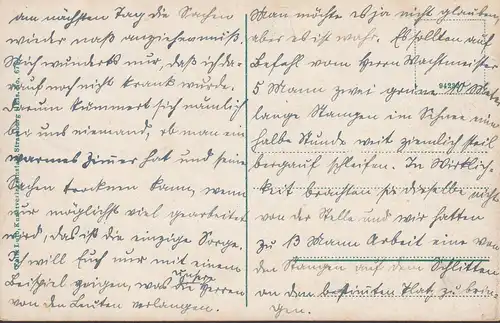 am nächsten Tag die Sachen
wieder naß anziehen muß.
Mich wundert's nur, daß ich da-
rauf noch nicht krank wurde.
Darum kümmert sich nämlich
bei uns niemand, ob man ein
warmes Zimer hat und seine
Sachen trocknen kann, wenn
nur möglichst viel gearbeitet
wird, das ist die einzige Sorge.
Ich will Euch nur mit einem
Beispiel zeigen, was unsere Herren
von den Leuten verlangen.
Man möchte es ja nicht glauben
aber es ist wahr. Es sollten auf
Befehl vom Herrn Wachtmeister
5 Mann zwei grüne Meter
lange Stangen im Schnee eine
halbe Stunde weit ziemlich steil
bergauf schleifen. In Wirklich-
keit brachten sie dieselben nicht
von der Stelle und wir hatten
zu 13 Mann Arbeit eine von
den Stangen auf dem Schlitten
an den bestimten Platz zu brin-
gen.